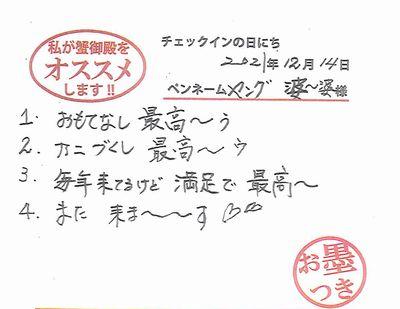 私が蟹御殿を
オススメ
します!!
チェックインの日にち
2021年12月14日
ペンネーム ヤング 婆〜婆様
1. おもてなし 最高〜ぅ
2. カニづくし 最高〜ゥ
3. 毎年来てるけど 満足で 最高〜
4. また 来ま〜〜〜す♡♡♡
お墨
つき